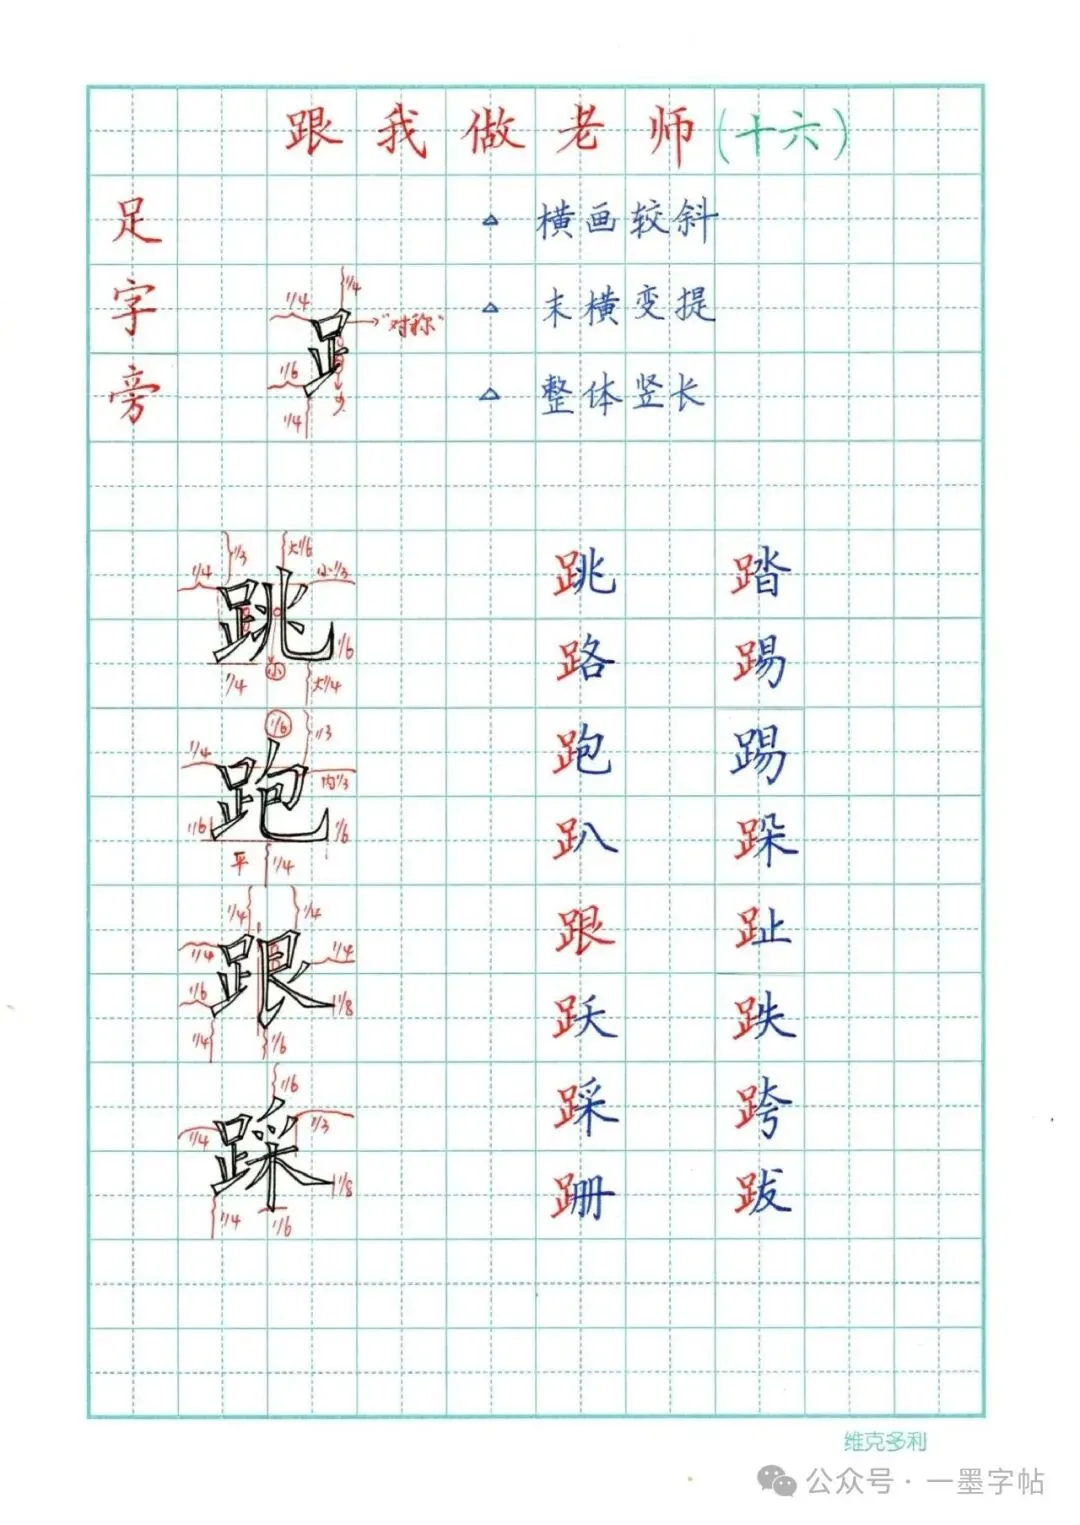 跟我做老师(十六)
足字旁
△ 横画较斜
△ 末横变提
△ 整体竖长
1/4 1/4
"对称"
1/6
1/4
跳 踏
路 踢
跑 踢
趴 跺
跟 趾
跃 跌
踩 跨
跚 跋
1/3 大1/6
1/4 小1/3
跳
1/6
小
1/4 大1/4
1/6 1/3
1/4
内1/3
跑
1/6 1/6
平 1/4
1/4 1/4
1/4 1/4
跟
1/6 1/8
1/4 1/6
1/6
1/4 1/3
踩
1/8
1/4 1/6
维克多利
公众号·一墨字帖